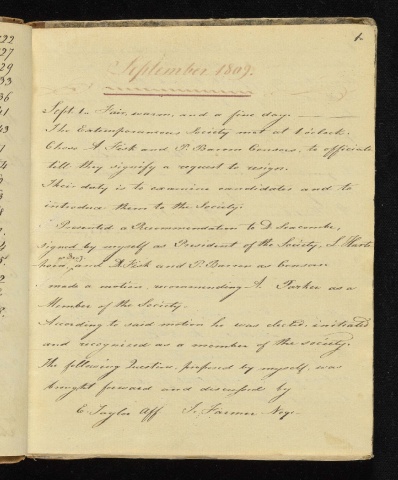 1.
September 1809.
Sept. 1. Fair, warm, and a fine day.
The Extemporaneous Society met at 1 o'clock.
Chose A. Fisk and P. Barron Censors, to officiate
till they signify a request to resign.
Their duty is to examine candidates and to
introduce them to the Society.
Presented a Recommendation to D.
signed by myself as President of the Society,
and A. Fisk and P. Barron as Censors
made a motion, recommending A. Parker as a
Member of the Society.
According to said motion he was elected, initiated
and recognized as a member of the society.
The following Question, proposed by myself, was
brought forward and discussed by
E. Taylor Aff J. Farmer Neg.
22
37
29
33
36
41
43